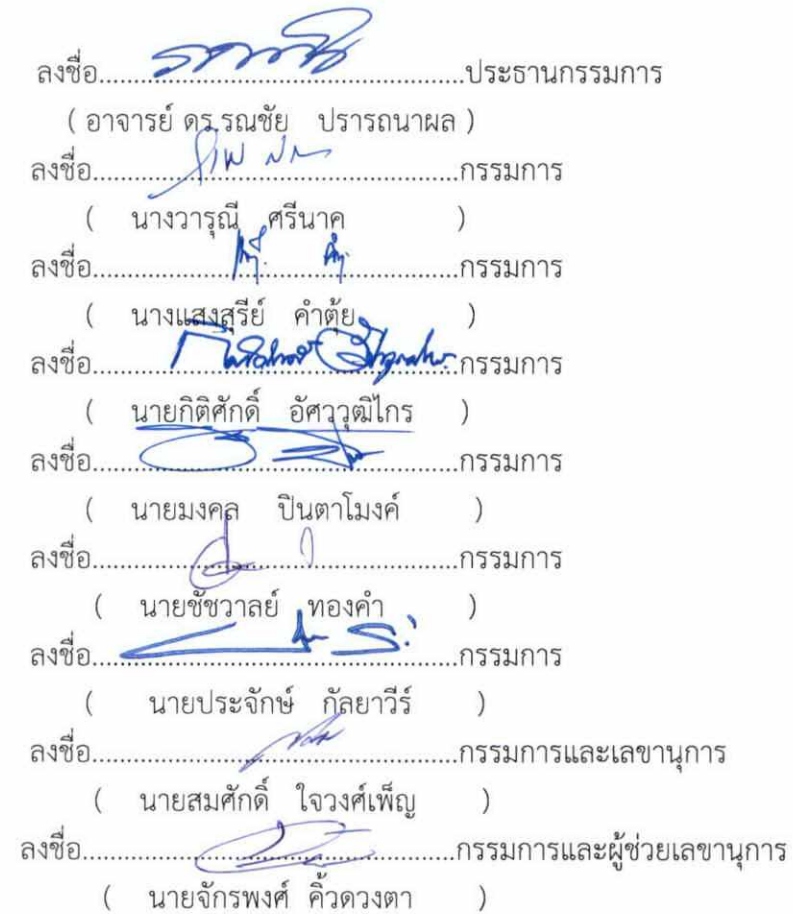 ลงชื่อ................................................ประธานกรรมการ
( อาจารย์ ดร.รณชัย ปรารถนาผล )
ลงชื่อ................................................กรรมการ
( นางวารุณี ศรีนาค )
ลงชื่อ................................................กรรมการ
( นางแสงสุรีย์ คำตุ้ย )
ลงชื่อ................................................กรรมการ
( นายกิติศักดิ์ อัศววุฒิไกร )
ลงชื่อ................................................กรรมการ
( นายมงคล ปินตาโมงค์ )
ลงชื่อ................................................กรรมการ
( นายชัชวาลย์ ทองคำ )
ลงชื่อ................................................กรรมการ
( นายประจักษ์ กัลยาวีร์ )
ลงชื่อ................................................กรรมการและเลขานุการ
( นายสมศักดิ์ ใจวงศ์เพ็ญ )
ลงชื่อ................................................กรรมการและผู้ช่วยเลขานุการ
( นายจักรพงศ์ คิ้วดวงตา )